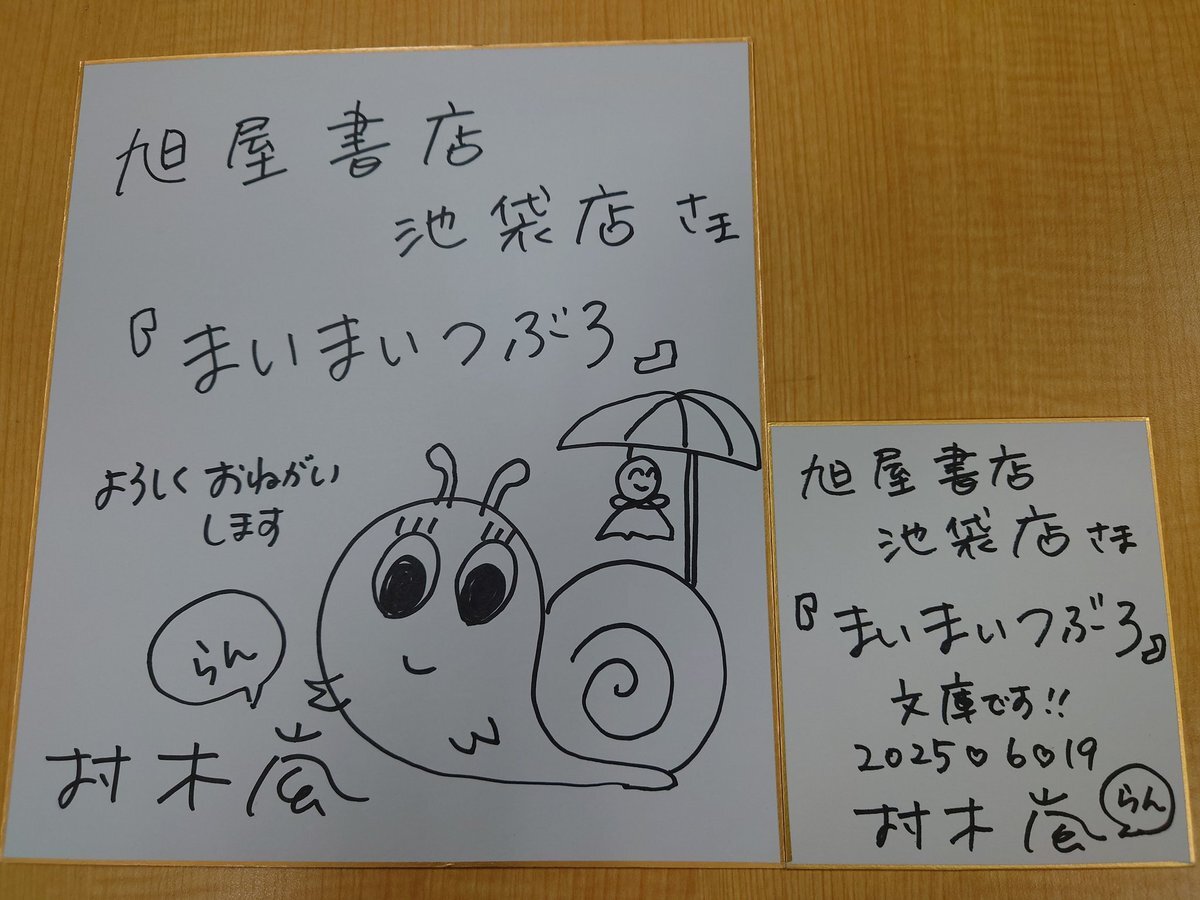 旭屋書店
池袋店さま
『まいまいつぶろ』
よろしくおねがい
します
らん
村木嵐
旭屋書店
池袋店さま
『まいまいつぶろ』
文庫です!!
2025♡6♡19
村木嵐
らん